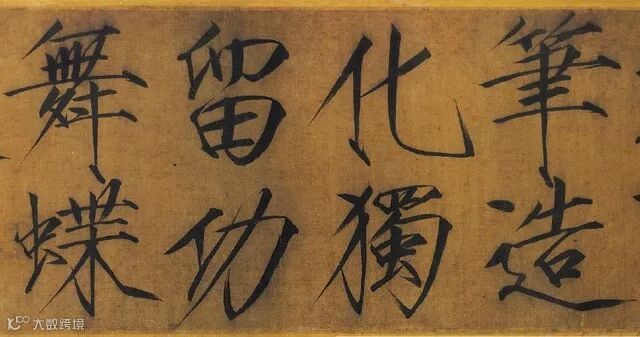 筆造
化獨
留功
舞蝶
大数跨境